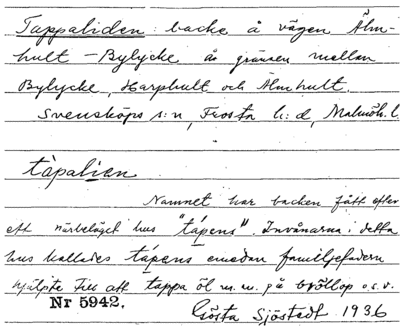 Tappaliden: backe å vägen Älm-
hult - Bylycke å gränsen mellan
Bylycke, Harphult och Älmhult.
Svensköps s:n, Frosta h:d, Malmöh. l.
tàpalien
Namnet har backen fått efter
ett närbeläget hus "tápens". Invånarna i detta
hus kallades tápens emedan familjefadern
hjälpte till att tappa öl m.m. på bröllop o.s.v.
Nr 5942.
Gösta Sjöstedt 1936